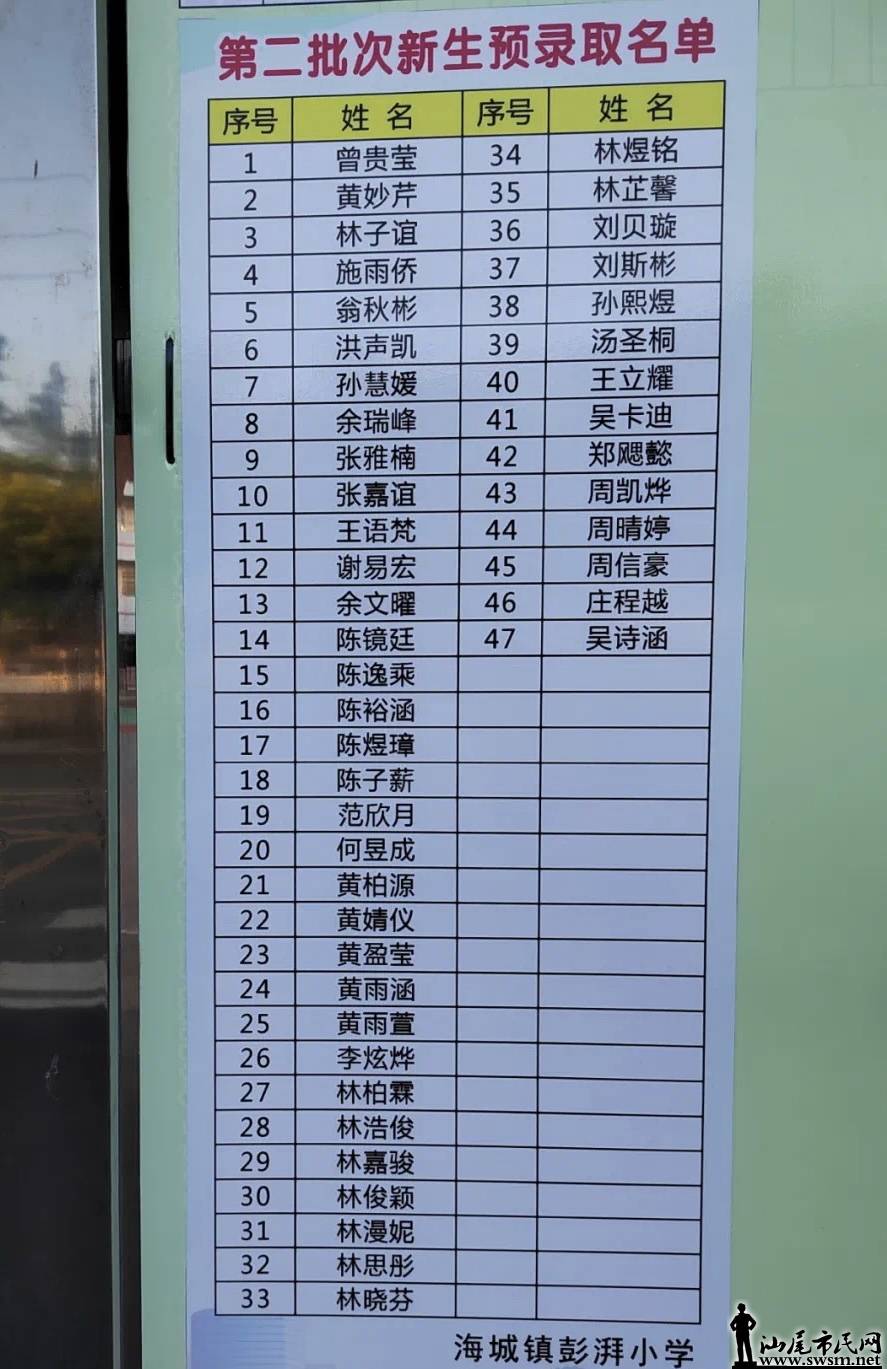 第二批次新生预录取名单
序号 姓名 序号 姓名
1 曾贵莹 34 林煜铭
2 黄妙芹 35 林芷馨
3 林子谊 36 刘贝璇
4 施雨侨 37 刘斯彬
5 翁秋彬 38 孙熙煜
6 洪声凯 39 汤圣桐
7 孙慧媛 40 王立耀
8 余瑞峰 41 吴卡迪
9 张雅楠 42 郑飔懿
10 张嘉谊 43 周凯烨
11 王语梵 44 周晴婷
12 谢易宏 45 周信豪
13 余文曜 46 庄程越
14 陈镜廷 47 吴诗涵
15 陈逸乘
16 陈裕涵
17 陈煜璋
18 陈子薪
19 范欣月
20 何昱成
21 黄柏源
22 黄婧仪
23 黄盈莹
24 黄雨涵
25 黄雨萱
26 李炫烨
27 林柏霖
28 林浩俊
29 林嘉骏
30 林俊颖
31 林漫妮
32 林思彤
33 林晓芬
海城镇彭湃小学
汕尾市民网
www.swsm.net